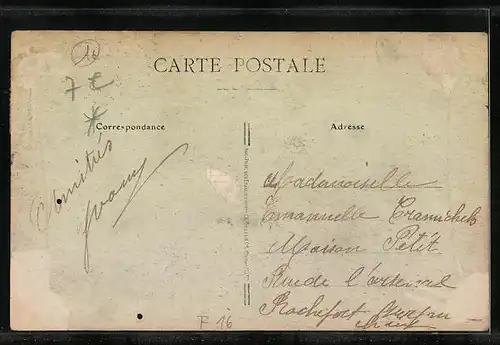 10
7 €
*
CARTE POSTALE
Correspondance
Adresse
Amitiés
Yvony
Mademoiselle
Emanuelle
Maison Petit
Rue de l'arsenal
Rochefort sur mer
F 16